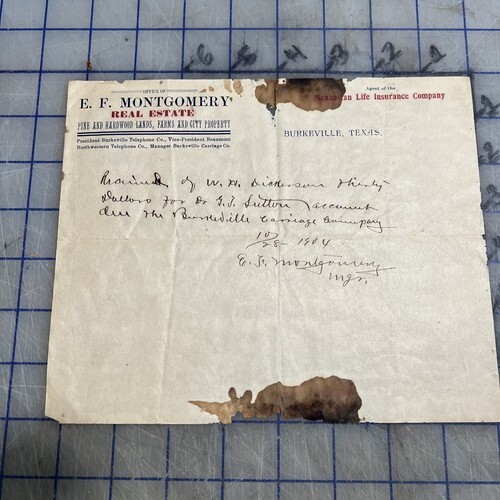 OFFICE OF
E. F. MONTGOMERY
REAL ESTATE
PINE AND HARDWOOD LANDS, FARMS AND CITY PROPERTY
President Burkeville Telephone Co., Vice-President Beaumont
Northwestern Telephone Co., Manager Burkeville Carriage Co.
Agent of the
Manhattan Life Insurance Company
BURKEVILLE, TEXAS.
Received of W. H. Dickerson thirty
Dollars for Dr G. J. Sutton account
due the Burkeville Carriage Company
10/28 - 1904
E. F. Montgomery
Mgr.
6 5 4 3 2 1